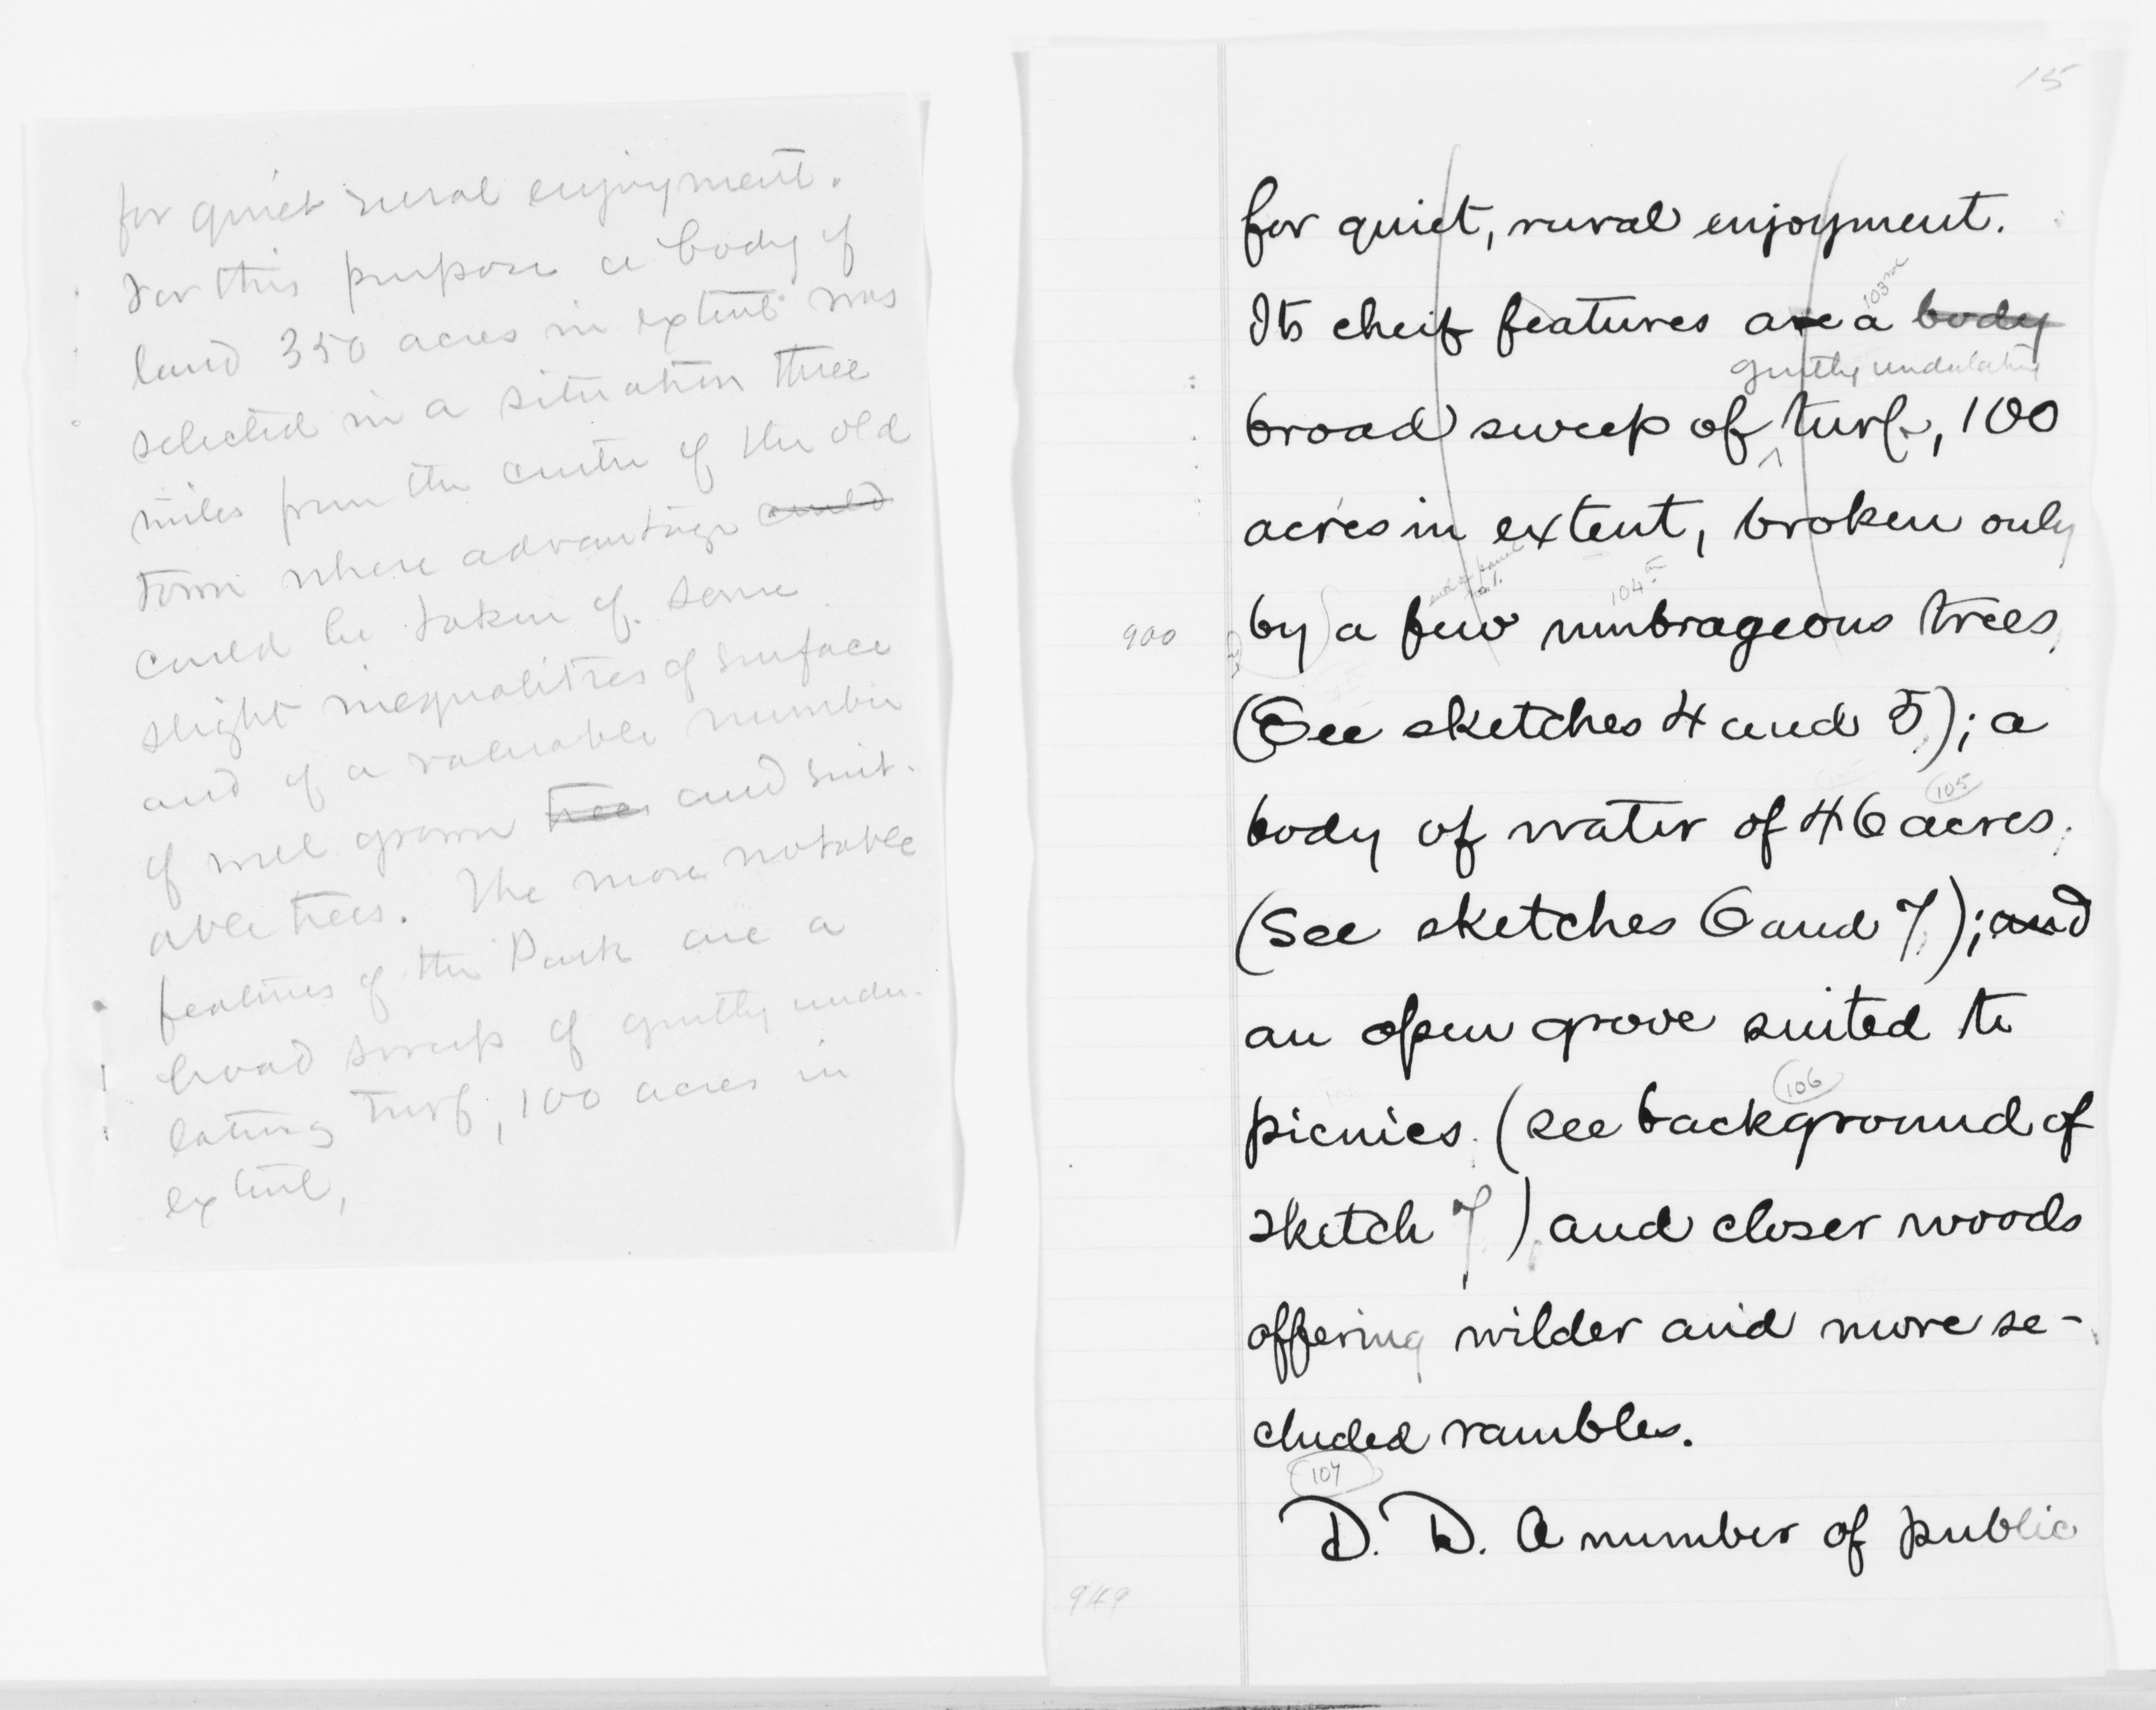 for quiet rural enjoyment.
For this purpose a body of
land 350 acres in extent was
selected in a situation three
miles from the centre of the old
town where advantage could
could be taken of some
slight inequalities of surface
and of a valuable number
of well grown trees and suit-
able trees. The more notable
features of the Park are a
broad sweep of gently undu-
lating turf, 100 acres in
extent,
15
for quiet, rural enjoyment.
103rd
Its cheif features are a body
gently undulating
broad sweep of turf, 100
acres in extent, broken only
104th
900
by a few umbrageous trees,
(See sketches 4 and 5); a
105
body of water of 46 acres,
(See sketches 6 and 7); and
an open grove suited to
106
picnics. (see background of
sketch 7) and closer woods
offering wilder and more se-
cluded rambles.
107
D. D. A number of public
949